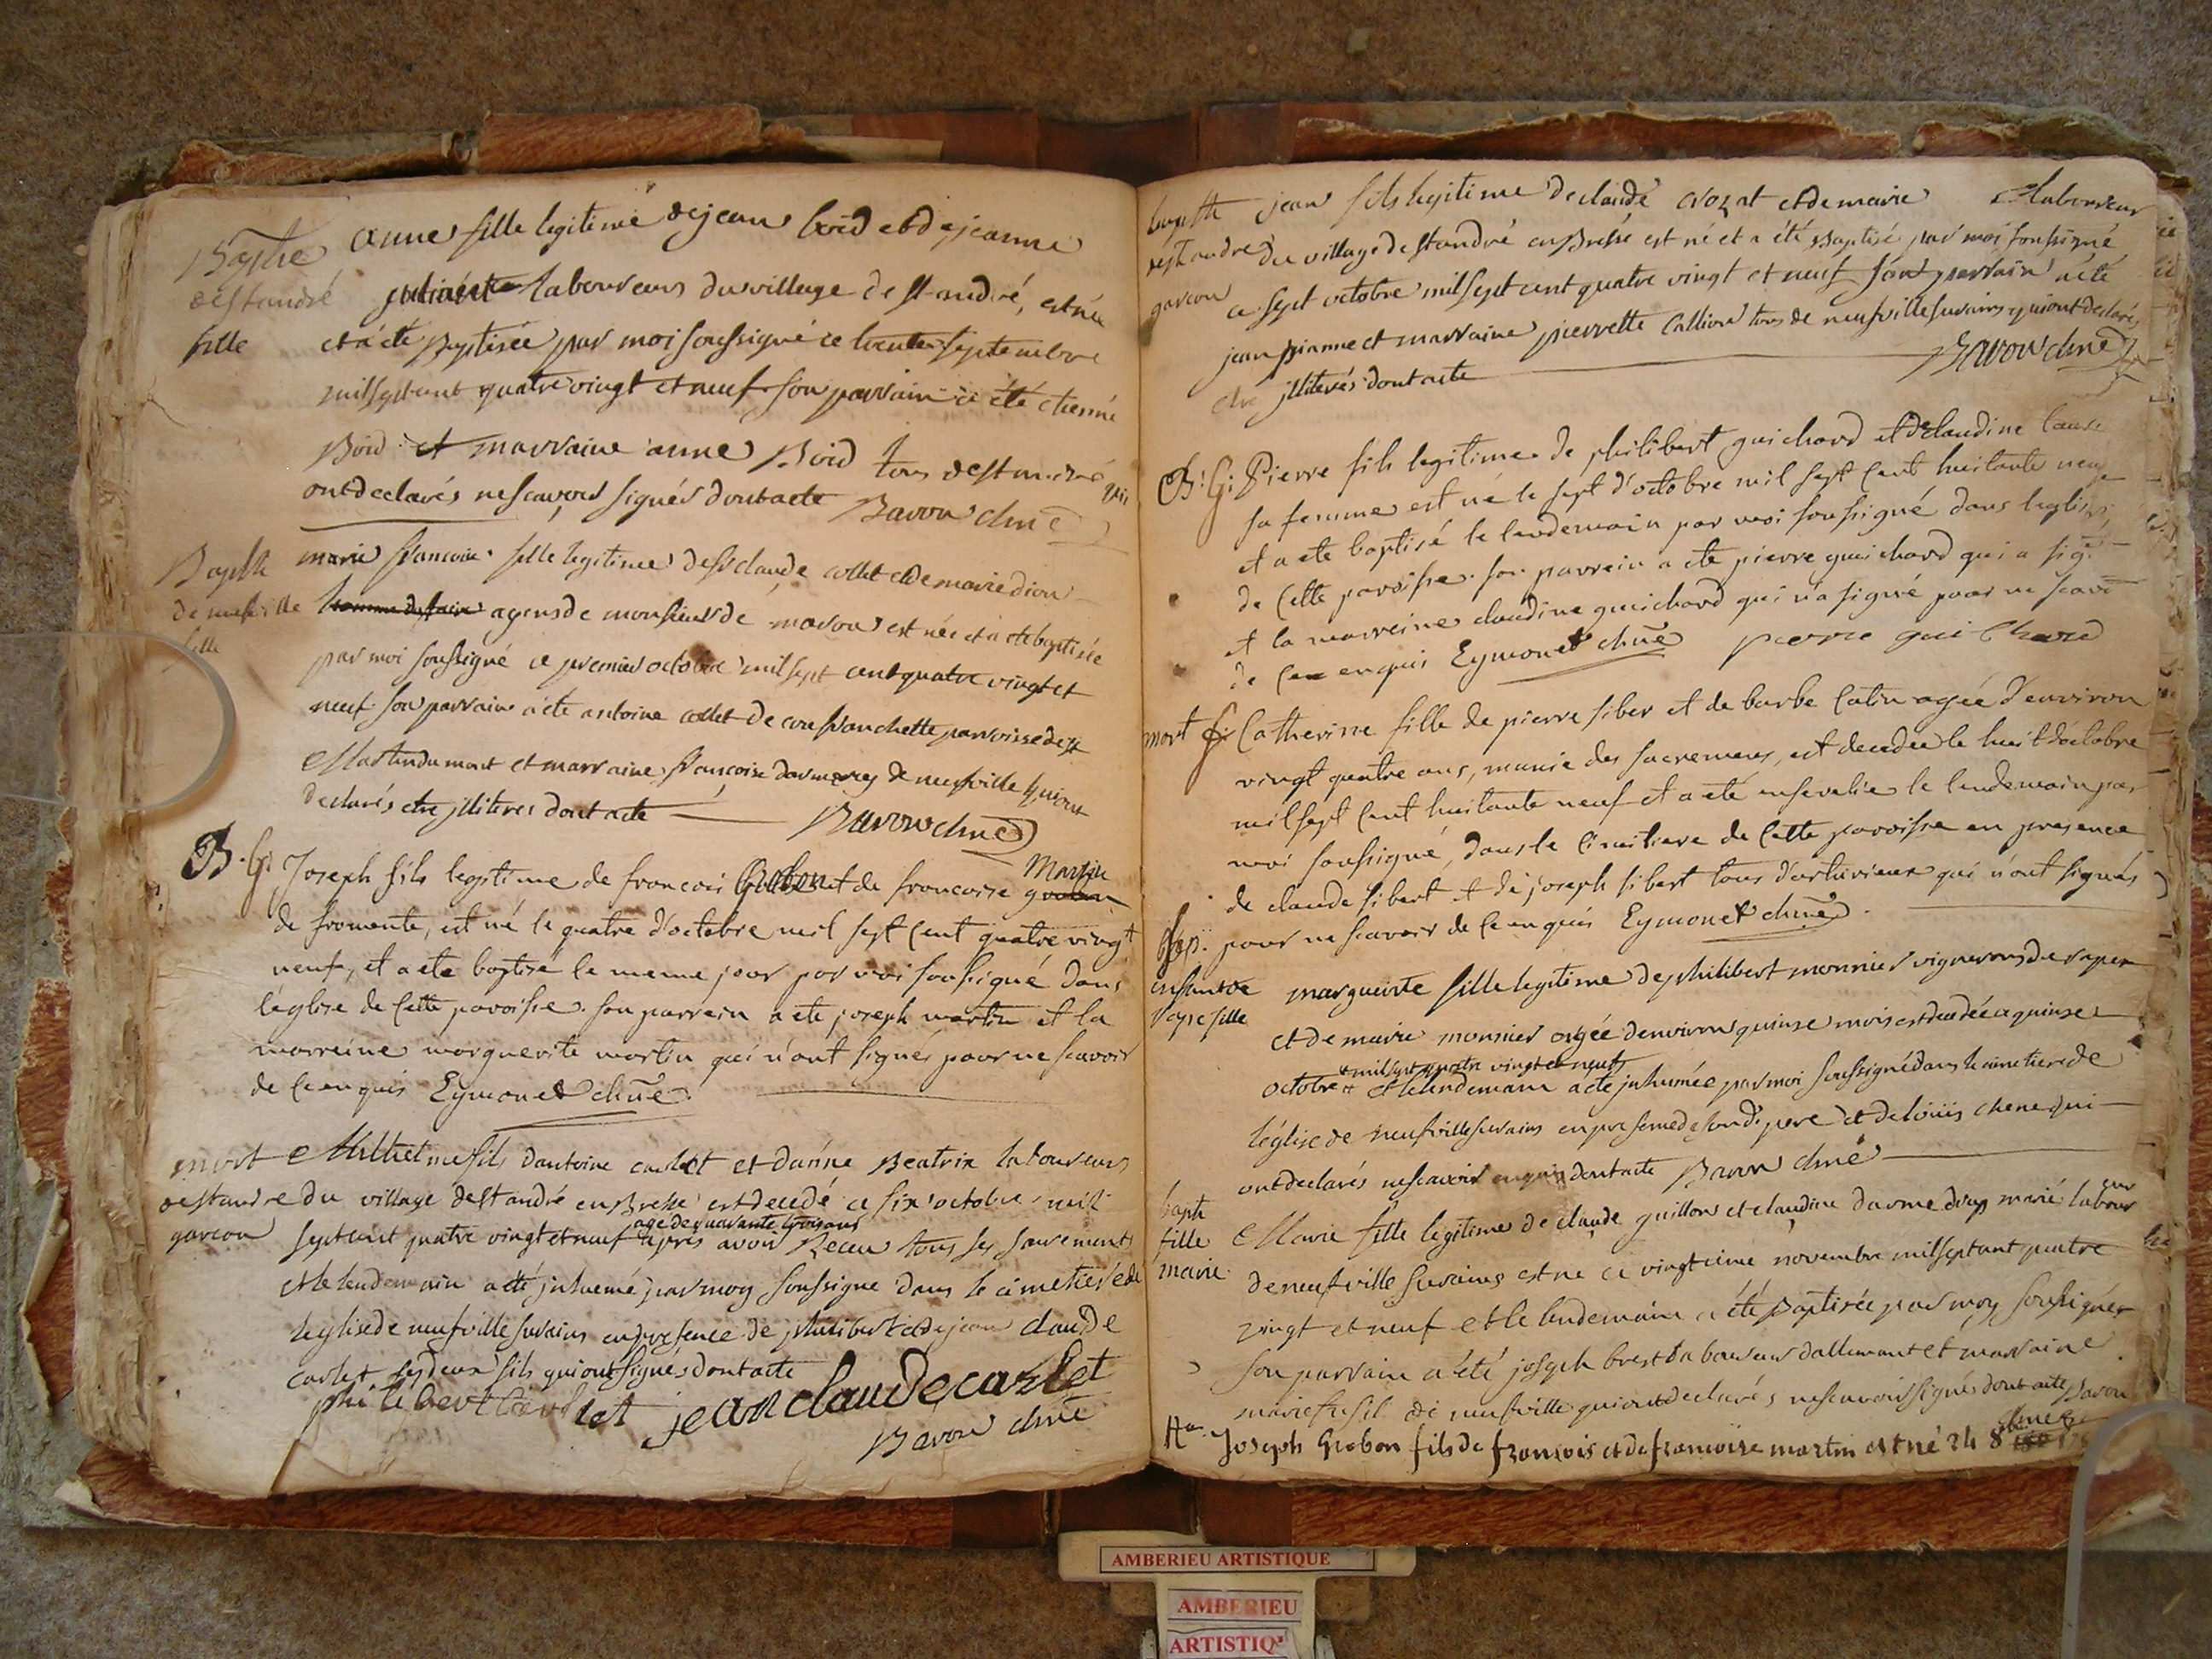 Baptheme anne fille legitime de jean boid et de jeanne
de st andré laboureurs du village de st andré, est née
fille et a été Baptisée par moi soussigné ce trente septembre
mil sept cent quatre vingt et neuf son parrain a été etienne
Boid et marraine anne Boid tous de st andré qui
ont declarés ne scavoir signés dont acte Bavou chne
Bapth marie francoise fille legitime de sr claude collet et de marie dion
de neufville agens de monsieur de mavou est née et a été baptisée
fille par moi soussigné ce premier octobre mil sept cent quatre vingt et
neuf son parrain a été antoine collet de paroisse de st
Martin du mont et marraine françoise de neufville qui ont
declarés etre jlliteres dont acte Bavou chne
B. G. Joseph fils legitime de francois Grobon et de francoise Martin
de fromente, est né le quatre d'octobre mil sept cent quatre vingt
neuf, et a ete baptisé le meme jour par moi soussigné dans
l'église de cette paroisse. son parrein a ete joseph martin et la
marreine marguerite martin qui n'ont signés pour ne scavoir
de ce enquis Eymonet chne
mort fils d'antoine carlet et d'anne Beatrix laboureurs
de st andre du village de st andré en Bresse est decedé ce six octobre mil
garcon sept cent quatre vingt et neuf agé de quarante trois ans apres avoir Receu tous ses sacrements
et le lendemain a été jnhumé par moy soussigné dans le cimetiere de
leglise de neufville sur ains en presence de philibert et de jean claude
carlet ses deux fils qui ont signés dont acte
philibert carlet jean claude carlet
Bavou chne
bapth jean fils legitime de claude crozat et de marie laboureur
de st andre du village de st andré en Bresse est né et a été Baptisé par moi soussigné
garcon ce sept octobre mil sept cent quatre vingt et neuf son parrain a été
jean pianne et marraine pierrette Callion tous de neufville sur ains qui ont declarés
etre jlliterés dont acte Bavou chne
B. G. Pierre fils legitime de philibert guichard et de claudine
sa femme est né le sept d'octobre mil sept cent huitante neuf
et a ete baptisé le lendemain par moi soussigné dans l'eglise
de cette paroisse. son parrein a ete pierre guichard qui a signé
et la marreine claudine guichard qui n'a signé pour ne scavoir
de ce enquis Eymonet chne pierre guichard
mort G. Catherine fille de pierre siber et de barbe Catin agée d'environ
vingt quatre ans, munie des sacremens, est decedee le huit d'octobre
mil sept cent huitante neuf et a eté ensevelie le lendemain par
moi soussigné, dans le cimitiere de cette paroisse en presence
de claude sibert et de joseph sibert tous qui n'ont signés
pour ne scavoir de ce enquis Eymonet chne
marguerite fille legitime de philibert monnier vigneron
fille et de marie monnier agée d'environ quinse mois est decedée a quinse
octobre mil sept quatre vingt et neuf et le lendemain a été jnhumée par moi soussigné dans le cimetiere de
l'église de neufville sur ains en presence de son dt pere et de loüis chene qui
ont declarés ne scavoir enquis dont acte Bavou chne
bapth
fille Marie fille legitime de claude guillon et claudine marié laboureur
marie de neufville sur ains est ne ce vingtieme novembre mil sept cent quatre
vingt et neuf et le lendemain a été Baptisée par moy soussigné
son parrain a été joseph brest laboureur d'allement et marraine
marie fusil de neufville qui ont declarés ne scavoir signés dont acte Bavou
chne
Joseph Grobon fils de françois et de françoise martin est né 24 8
AMBERIEU ARTISTIQUE
AMBERIEU
ARTISTIQ